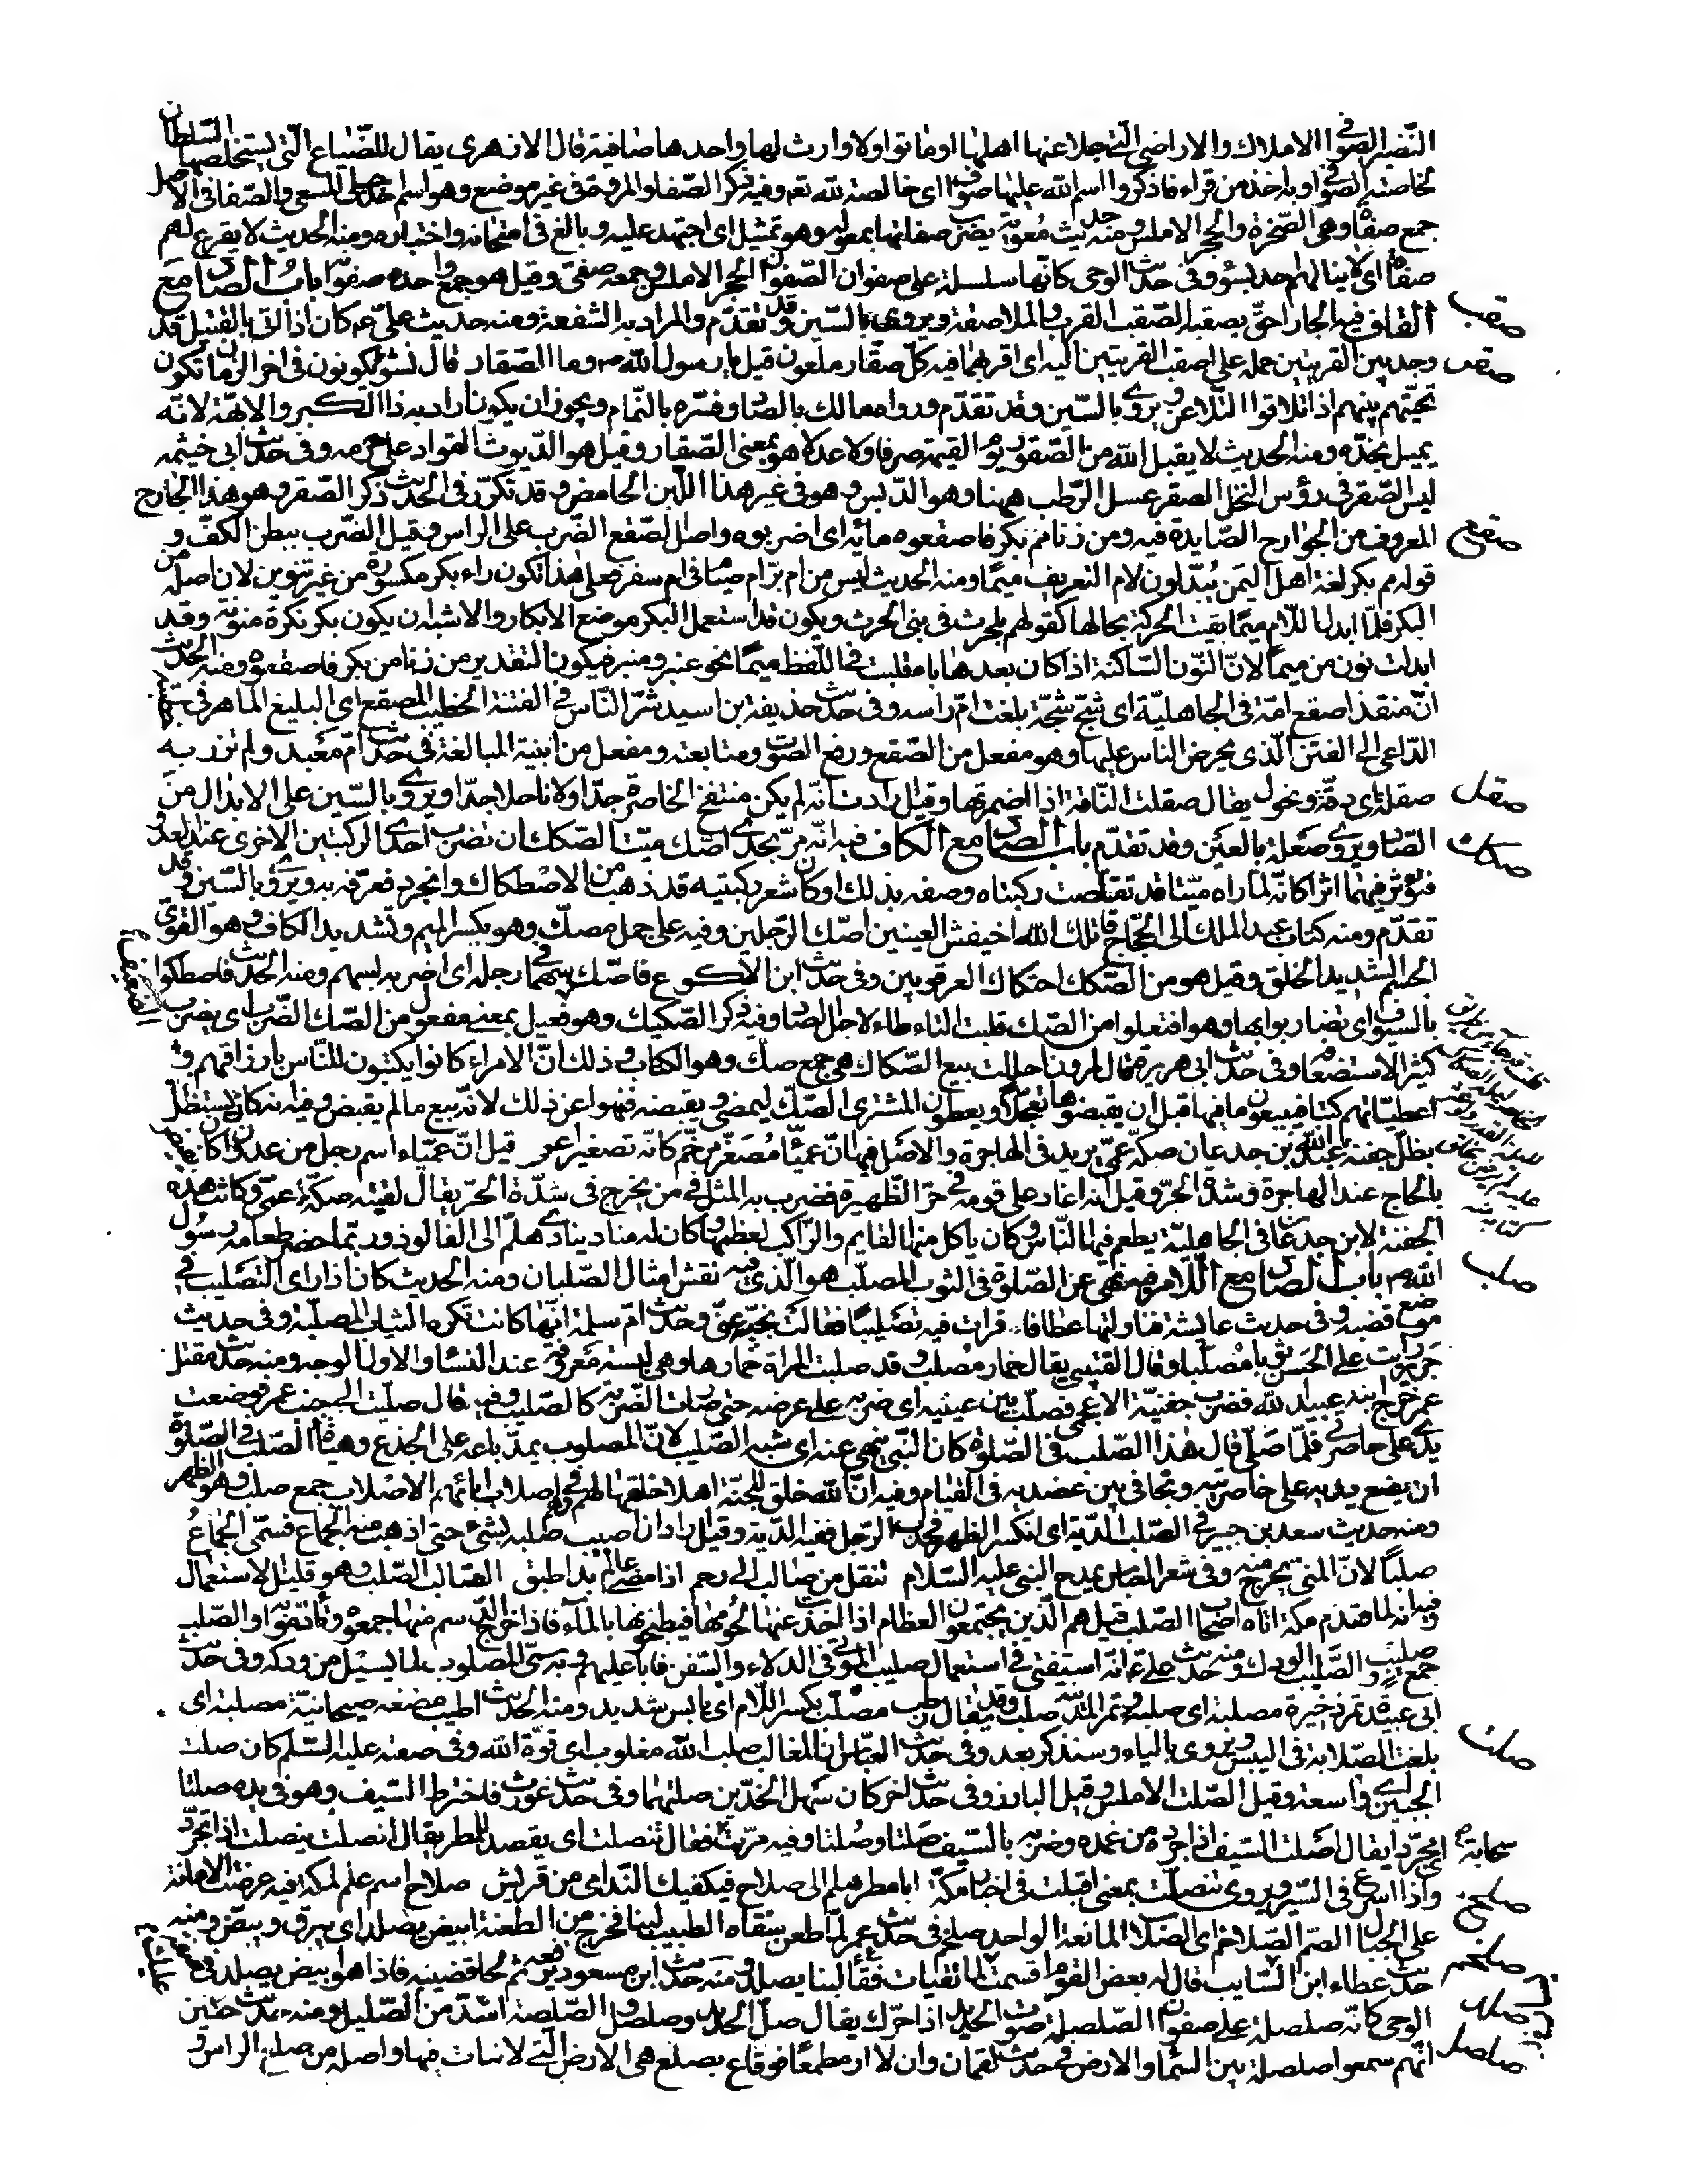 النضير الصوافى الاملاك والاراضى التى جلا عنها اهلها او ماتوا ولا وارث لها واحدها صافية قال الازهرى يقال للضياع التى يستخلصها السلطان
لخاصته الصوافى وبه اخذ من قراء فاذكروا اسم الله عليها صوافى اى خالصة لله تعه وفيه ذكر الصفا والمروة فى غير موضع وهو اسم احد جبلى المسعى والصفا فى الاصل
جمع صفاة وهى الصخرة والحجر الاملس ومنه حديث معوية يضرب صفاتها بمعوله وهو تمثيل اى اجتهد عليه وبالغ فى امتحانه واختباره ومنه الحديث لا يقرع لهم
صفاة اى لا ينالهم احد بسوء وفى حديث الوحى كانها سلسلة على صفوان الصفوان الحجر الاملس وجمعه صفى وقيل هو جمع واحده صفوانة باب الصاد مع
صقب القاف فيه الجار احق بصقبه الصقب القرب والملاصقة ويروى بالسين وقد تقدم والمراد به الشفعة ومنه حديث على عه كان اذا اتى بالقتيل قد
صقر وجد بين القريتين حمله على اصقب القريتين اليه اى اقربهما فيه كل صقار ملعون قيل يا رسول الله وما الصقار قال نشؤ يكونون فى اخر الزمان تكون
تحيتهم بينهم اذا تلاقوا التلاعن ويروى بالسين وقد تقدم ورواه مالك بالصاد وفسره بالنمام ويجوز ان يكون اراد به ذا الكبر والابهة لانه
يميل بخده ومنه الحديث لا يقبل الله من الصقور يوم القيمة صرفا ولا عدلا هو بمعنى الصقار وقيل هو الديوث القواد على حرمه وفى حديث ابى خيثمه
ليس الصقر فى رؤس النخل الصقر عسل الرطب ههنا وهو الدبس وهو فى غير هذا اللبن الحامض وقد تكرر فى الحديث ذكر الصقر وهو هذا الجارح
صقع المعروف من الجوارح الصايدة فيه ومن زنا مم بكر فاصقعوه مائة اى اضربوه واصل الصقع الضرب على الراس وقيل الضرب ببطن الكف و
قوله مم بكر لغة اهل اليمن يبدلون لام التعريف ميما ومنه الحديث ليس من ام بر ام صيام فى ام سفر فعلى هذا تكون راء بكر مكسورة من غير تنوين لان اصله من
البكر فلما ابدل اللام ميما بقيت الحركة بحالها كقولهم بلحرث فى بنى الحرث ويكون قد استعمل البكر موضع الابكار والاشبه ان يكون بكر نكرة منونة وقد
ابدلت نون من ميما لان النون الساكنة اذا كان بعدها باء قلبت فى اللفظ ميما نحو عنبر ومنبر فيكون التقدير من زنا من بكر فاصقعوه ومنه الحديث
ان منقذا صقع امة فى الجاهلية اى شج شجة بلغت ام راسه وفى حديث حذيفة بن اسيد شر الناس فى الفتنة الخطيب المصقع اى البليغ الماهر فى خطبته
الداعى الى الفتن الذى يحرض الناس عليها وهو مفعل من الصقع ورفع الصوت ومتابعته ومفعل من ابنية المبالغة فى حديث ام معبد ولم تزر به
صقل صقلة اى دقة ونحول يقال صقلت الناقة اذا اضمرتها وقيل ارادت انه لم يكن منتفخ الخاصرة جدا ولا ناحلا جدا ويروى بالسين على الابدال من
صكك الصاد ويروى صعلة بالعين وقد تقدم باب الصاد مع الكاف فيه انه مر بجدى اصك ميتا الصكك ان تضرب احدى الركبتين الاخرى عند العدو
فتؤثر فيهما اثرا كانه لما راه ميتا قد تقلصت ركبتاه وصفه بذلك او كان شعر ركبتيه قد ذهب من الاصطكاك وانجرد فعرفه به ويروى بالسين وقد
تقدم ومنه كتاب عبد الملك الى الحجاج قاتلك الله اخيفش العينين اصك الرجلين وفيه على جمل مصك وهو بكسر الميم وتشديد الكاف هو القوى
الجسم الشديد الخلق وقيل هو من الصكك احتكاك العرقوبين وفى حديث ابن الاكوع فاصك سهما فى رجله اى اضربه بسهم ومنه الحديث فاصطكوا
بالسيوف اى تضاربوا بها وهو افتعلوا من الصك قلبت التاء طاء لاجل الصاد وفيه ذكر الصكيك وهو فعيل بمعنى مفعول من الصك الضرب اى يضرب
كثيرا لاستضعافه وفى حديث ابى هريرة قال لمروان احللت بيع الصكاك هى جمع صك وهو الكتاب وذلك ان الامراء كانوا يكتبون للناس بارزاقهم و
اعطياتهم كتبا فيبيعون ما فيها قبل ان يقبضوها تعجلا ويعطون المشترى الصك ليمضى ويقبضه فنهوا عن ذلك لانه بيع ما لم يقبض وفيه انه كان يستظل
بظل جفنة عبدالله بن جدعان صكة عمى يريد فى الهاجرة والاصل فيها ان عميا مصغر مرخم كانه تصغير اعمى قيل ان عمياء اسم رجل من عدوان كان يفيض
بالحاج عند الهاجرة وشدة الحر وقيل انه اغار على قومه فى حر الظهيرة فضرب به المثل فى من يخرج فى شدة الحر يقال لقيته صكة عمى وكانت هذه
الجفنة لابن جدعان فى الجاهلية يطعم فيها الناس وكان ياكل منها القايم والراكب لعظمها وكان له مناد ينادى هلم الى الفالوذ وربما حضر طعامه رسول
صلب الله باب الصاد مع اللام فيه نهى عن الصلوة فى الثوب المصلب هو الذى فيه نقش امثال الصلبان ومنه الحديث كان اذا راى التصليب فى
موضع قضبه وفى حديث عايشة فناولتها عطافا فرات فيه تصليبا فقالت نحيه عنى وحديث ام سلمة انها كانت تكره الثياب المصلبة وفى حديث
جرير رايت على الحسن ثوبا مصلبا وقال القتيبى يقال خمار مصلب وقد صلبت المراة خمارها وهى لبسة معروفة عند النساء والاول الوجه ومنه حديث مقتل
عمر خرج ابنه عبيد الله فضرب جفينة الاعجمى فصلب بين عينيه اى ضربه على عرضه حتى صارت الضربة كالصليب وفيه قال صليت الى جنب عمر فوضعت
يدى على خاصرتى فلما صلى قال هذا الصلب فى الصلوة كان النبى ينهى عنه اى شبه الصليب لان المصلوب يمد باعه على الجذع وهيئة الصلب فى الصلوة
ان يضع يديه على خاصرتيه ويجافى بين عضديه فى القيام وفيه ان الله خلق للجنة اهلا خلقها لهم وهم فى اصلاب ابائهم الاصلاب جمع صلب وهو الظهر
ومنه حديث سعد بن جبير فى الصلب الدية اى ان كسر الظهر فحدب الرجل ففيه الدية وقيل اراد ان اصيب صلبه بشىء حتى اذهب منه الجماع فسمى الجماع
صلبا لان المنى يخرج منه وفى شعر العباس يمدح النبى عليه السلام تنقل من صالب الى رحم اذا مضى عالم بدا طبق الصالب الصلب وهو قليل الاستعمال
وفيه انه لما قدم مكة اتاه اصحاب الصلب قيل هم الذين يجتمعون العظام اذا اخذت عنها لحومها فيطبخونها بالماء فاذا خرج الدسم منها جمعوه وتأدموا والصلب
جمع صليب والصليب الودك ومنه حديث على عه انه استفتى فى استعمال صليب الموتى فى الدلاء والسفن فابى عليهم وبه سمى المصلوب لما يسيل من ودكه وفى حديث
ابى عبيدة تمر ذخيرة مصلبة اى صلبة وتمر المدينة صلب وقد يقال رطب مصلب بكسر اللام اى يابس شديد ومنه الحديث اطيب مضغه صيحانية مصلبة اى
صلت بلغت الصلابة فى اليبس ويروى بالياء وسنذكر بعد وفى حديث العباس ان المغالب صلب الله مغلوب اى قوة الله وفى صفته عليه السلم كان صلت
الجبين اى واسعة وقيل الصلت الاملس وقيل البارز وفى حديث اخر كان سهل الخدين صلتهما وفى حديث غورث فاخترط السيف وهو فى يده صلتا
اى مجردا يقال اصلت السيف اذا جرده من غمده وضربه بالسيف صلتا وصلتا وفيه مرت سحابة فقال تنصلت اى يقصد للمطر يقال انصلت ينصلت اذا تجرد
واذا اسرع فى السير ويروى تنصلت بمعنى اقبلت فى اخبار مكة ابا مطر هلم الى صلاح فيكفيك الندامى من قريش صلاح اسم علم لمكة فيه عرضت الامانة
صلخم على الجبال الصم الصلاخم اى الصلاب المانعة الواحد صلخم فى حديث عمر لما طعن سقاه الطبيب لبنا فخرج من الطعنة ابيض يصلد اى يبرق ويبص ومنه
حديث عطاء ابن السايب قال له بعض القوم اقسمت لما تقيات فقاء لبنا يصلد ومنه حديث ابن مسعود يرفعه ثم لحا قضيبه فاذا هو ابيض يصلد فى صفة
صلصل الوحى كانه صلصلة على صفوان الصلصلة صوت الحديد اذا حرك يقال صل الحديد وصلصل والصلصلة اشد من الصليل ومنه حديث حنين
انهم سمعوا صلصلة بين السماء والارض فى حديث لقمان وان لا ار مطمعا فوقاع بصلع هى الارض التى لا نبات فيها واصله من صلع الراس و